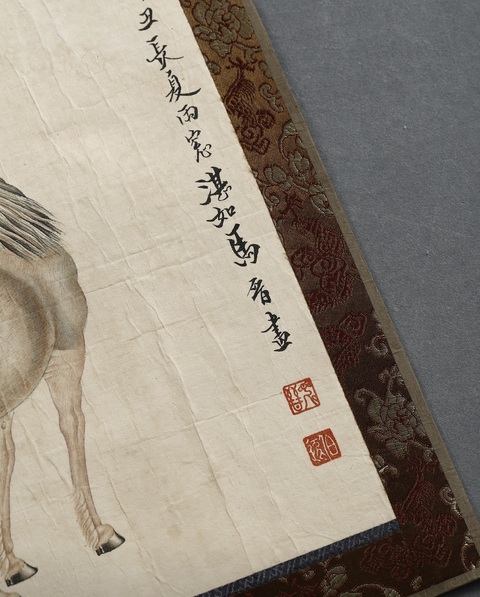 丑長夏雨窓湛如馬晉畫